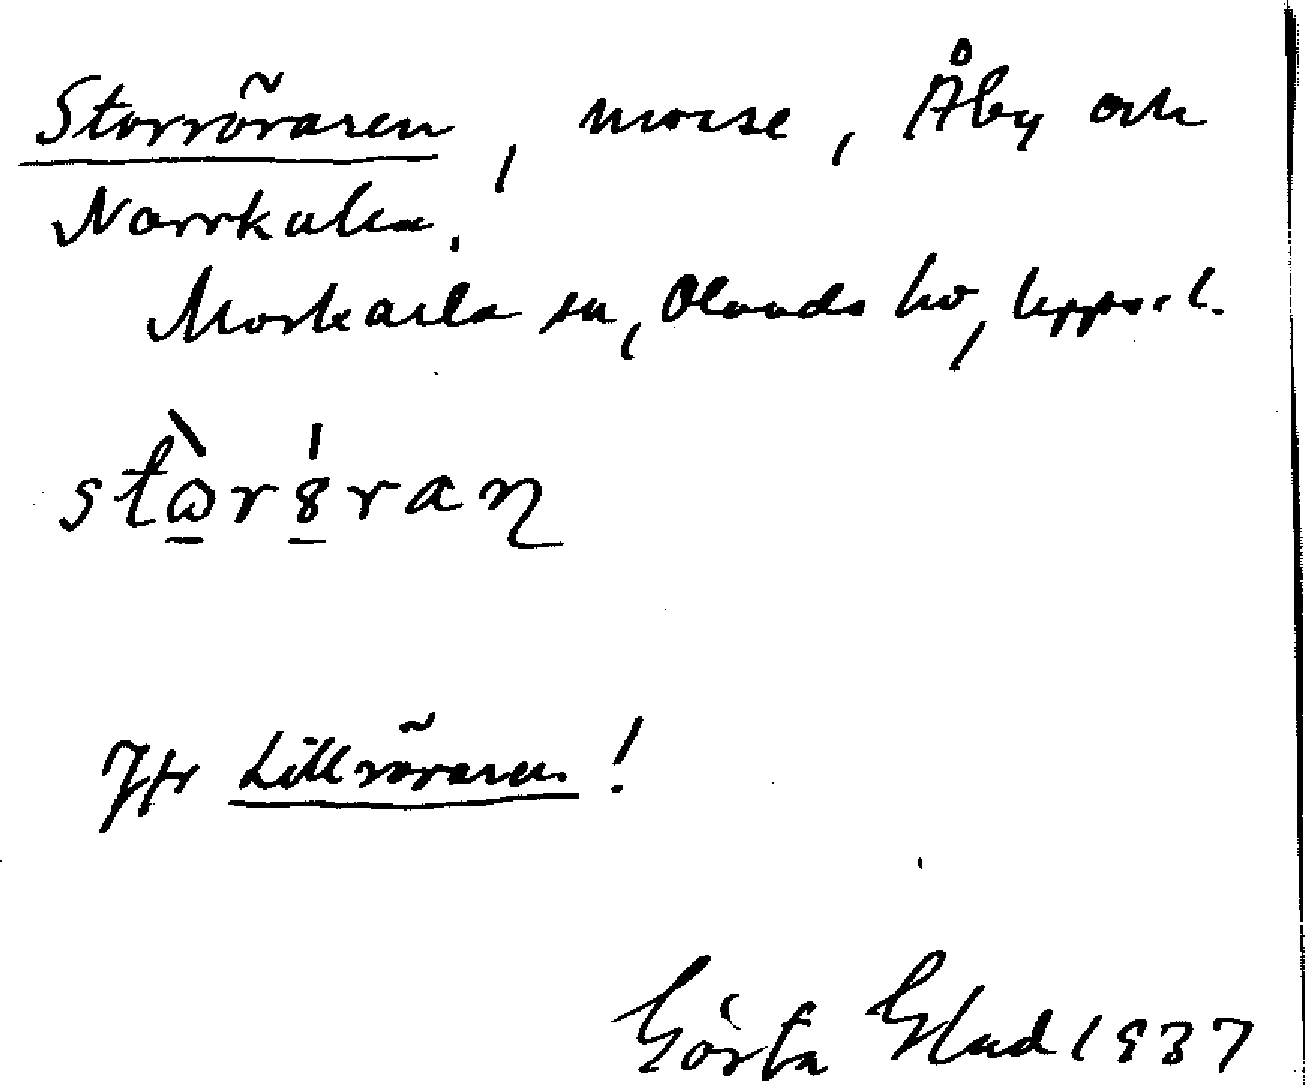 Storröraren, mosse, Åby och
Norrkulla.
Morkarla sn, Olands hd, Upps. l.
stωrȣran
Jfr Lillröraren!
Gösta Glad 1937